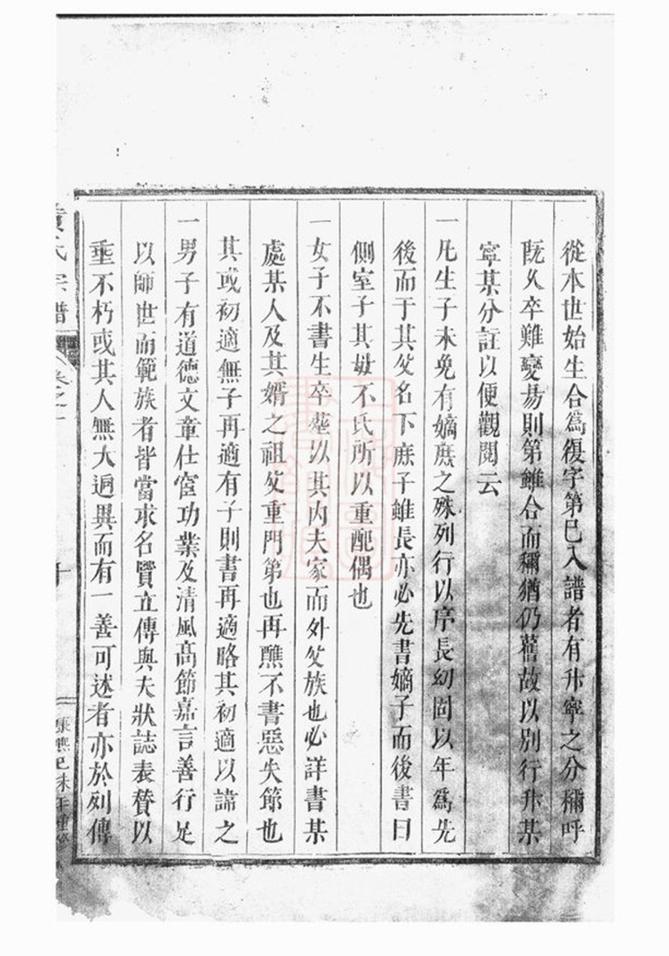 從本世始生合爲復字第已入譜者有升寧之分稱呼
旣久卒難變易則第雖合而稱猶仍舊故以別行升某
寧某分註以便觀閱云
一凡生子未免有嫡庶之殊列行以序長幼固以年爲先
後而于其父名下庶子雖長亦必先書嫡子而後書曰
側室子其母不氏所以重配偶也
一女子不書生卒塟以其內夫家而外父族也必詳書某
處某人及其婿之祖父重門第也再醮不書惡失節也
其或初適無子再適有子則書再適略其初適以諱之
一男子有道德文章仕宦功業及清風高節嘉言善行足
以師世而範族者皆當求名賢立傳與夫狀誌表賛以
垂不朽或其人無大過異而有一善可述者亦於列傳
氏宗譜
卷之一
康熙己未年重